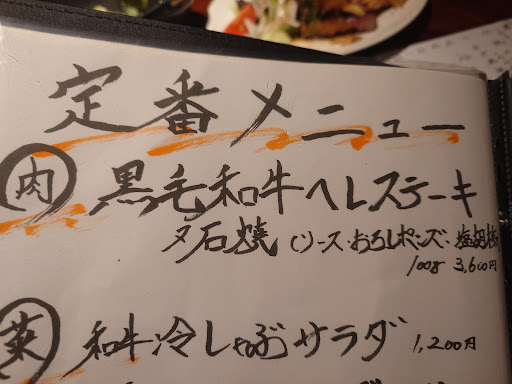 定番メニュー
肉 黒毛和牛ヘレステーキ
石焼 (ソース・おろしポンズ・塩胡椒
100g 3,600円
菜 和牛冷しゃぶサラダ 1,200円